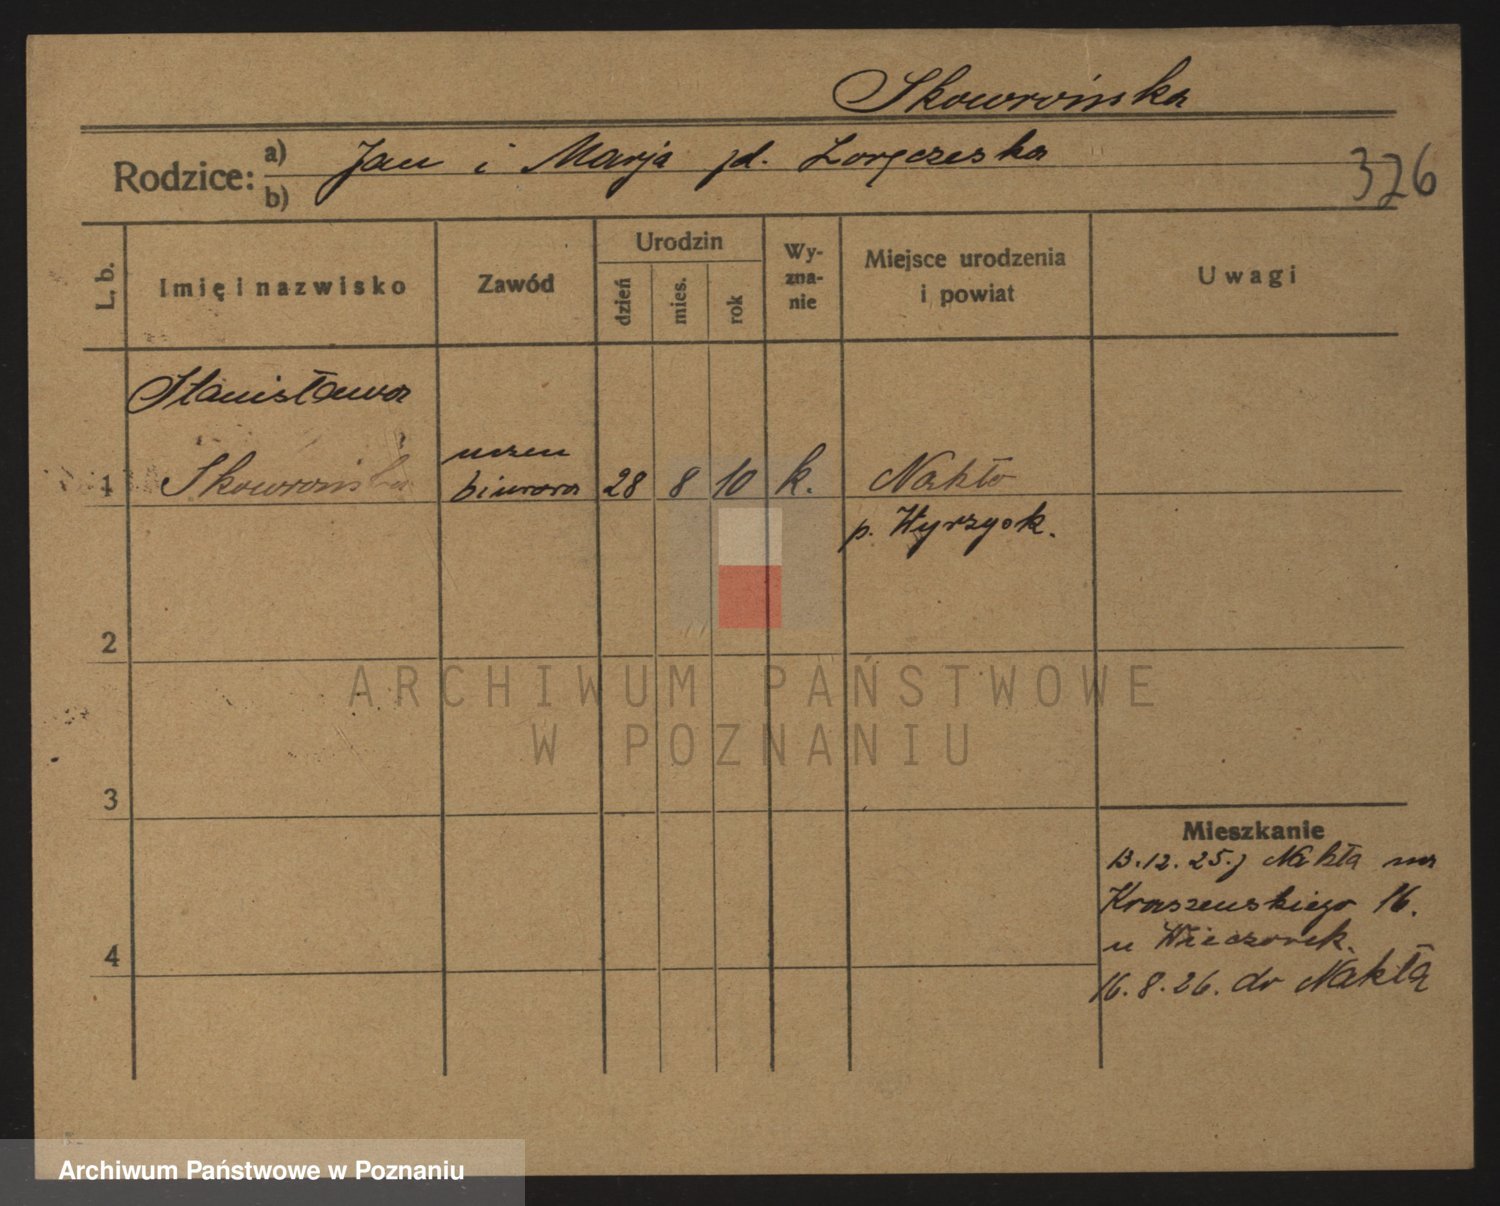 Skowrońska
Rodzice: a) Jan i Marja
b)
326
L. b.
Imię i nazwisko
Zawód
Urodzin
dzień
mies.
rok
Wy-
zna-
nie
Miejsce urodzenia
i powiat
Uwagi
Stanisława
1 Skowrońska
uczen
biurowa
28 8 10 k. Nakło
p. Wyrzysk.
2
ARCHIWUM PAŃSTWOWE
W POZNANIU
3
Mieszkanie
13.12.25. z Nakła na
Kraszewskiego 16.
u Wieczorek.
4
16.8.26. do Nakła
Archiwum Państwowe w Poznaniu